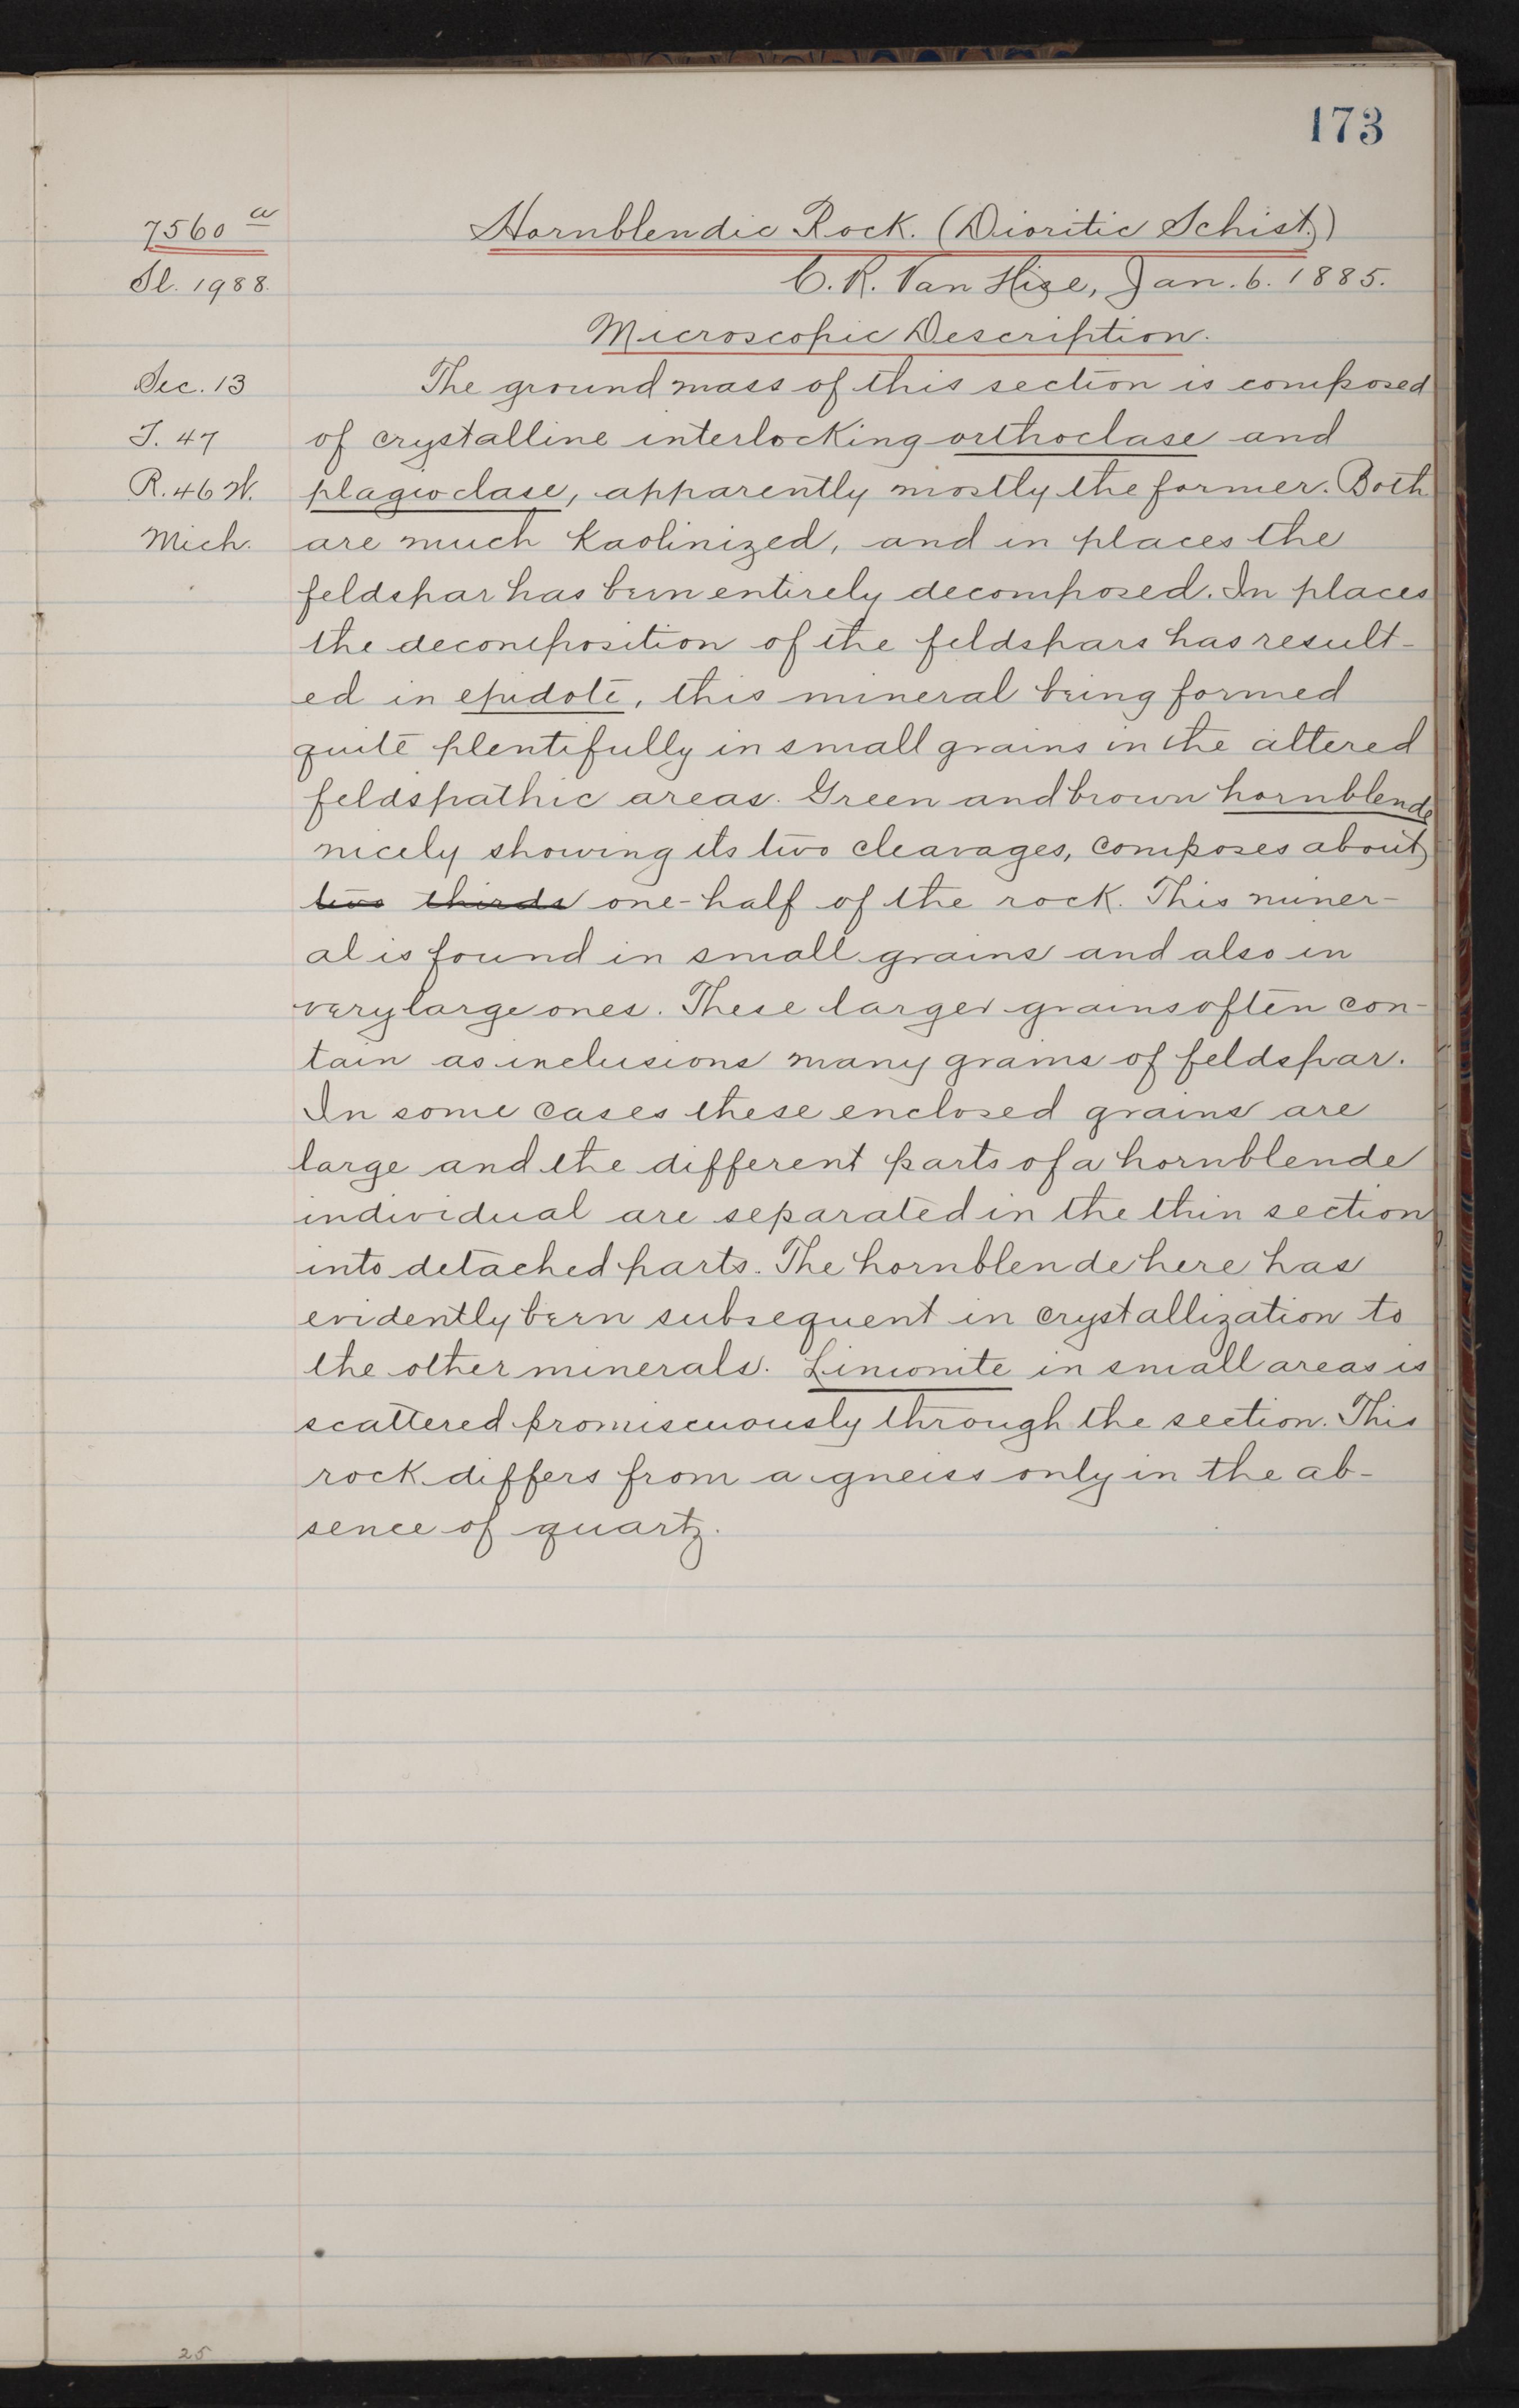 173
7560 a
Hornblendic Rock. (Dioritic Schist.)
Sl. 1988.
C. R. Van Hise, Jan. 6. 1885.
Microscopic Description.
Sec. 13
The ground mass of this section is composed
T. 47
of crystalline interlocking orthoclase and
R. 46 W.
plagioclase, apparently mostly the former. Both
Mich.
are much kaolinized, and in places the
feldspar has been entirely decomposed. In places
the decomposition of the feldspars has result-
ed in epidote, this mineral being formed
quite plentifully in small grains in the altered
feldspathic areas. Green and brown hornblende
nicely showing its two cleavages, composes about
two thirds one-half of the rock. This miner-
al is found in small grains and also in
very large ones. These larger grains often con-
tain as inclusions many grains of feldspar.
In some cases these enclosed grains are
large and the different parts of a hornblende
individual are separated in the thin section
into detached parts. The hornblende here has
evidently been subsequent in crystallization to
the other minerals. Limonite in small areas is
scattered promiscuously through the section. This
rock differs from a gneiss only in the ab-
sence of quartz.
25